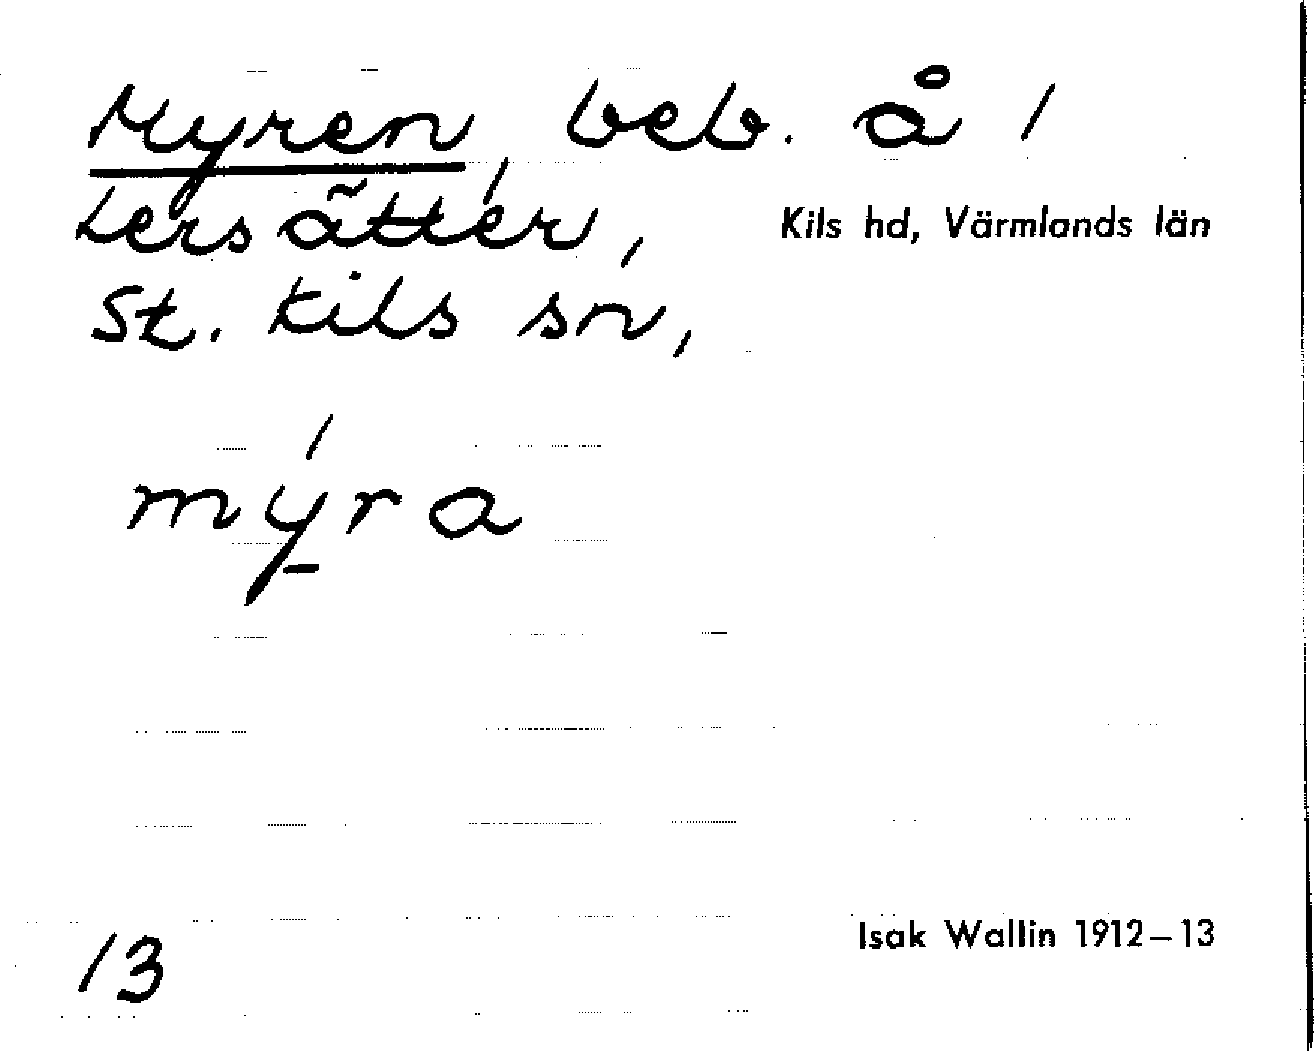 Myren, beb. å 1
Lersätter,
Kils hd, Värmlands län
St. Kils sn,
mýra
13
Isak Wallin 1912–13